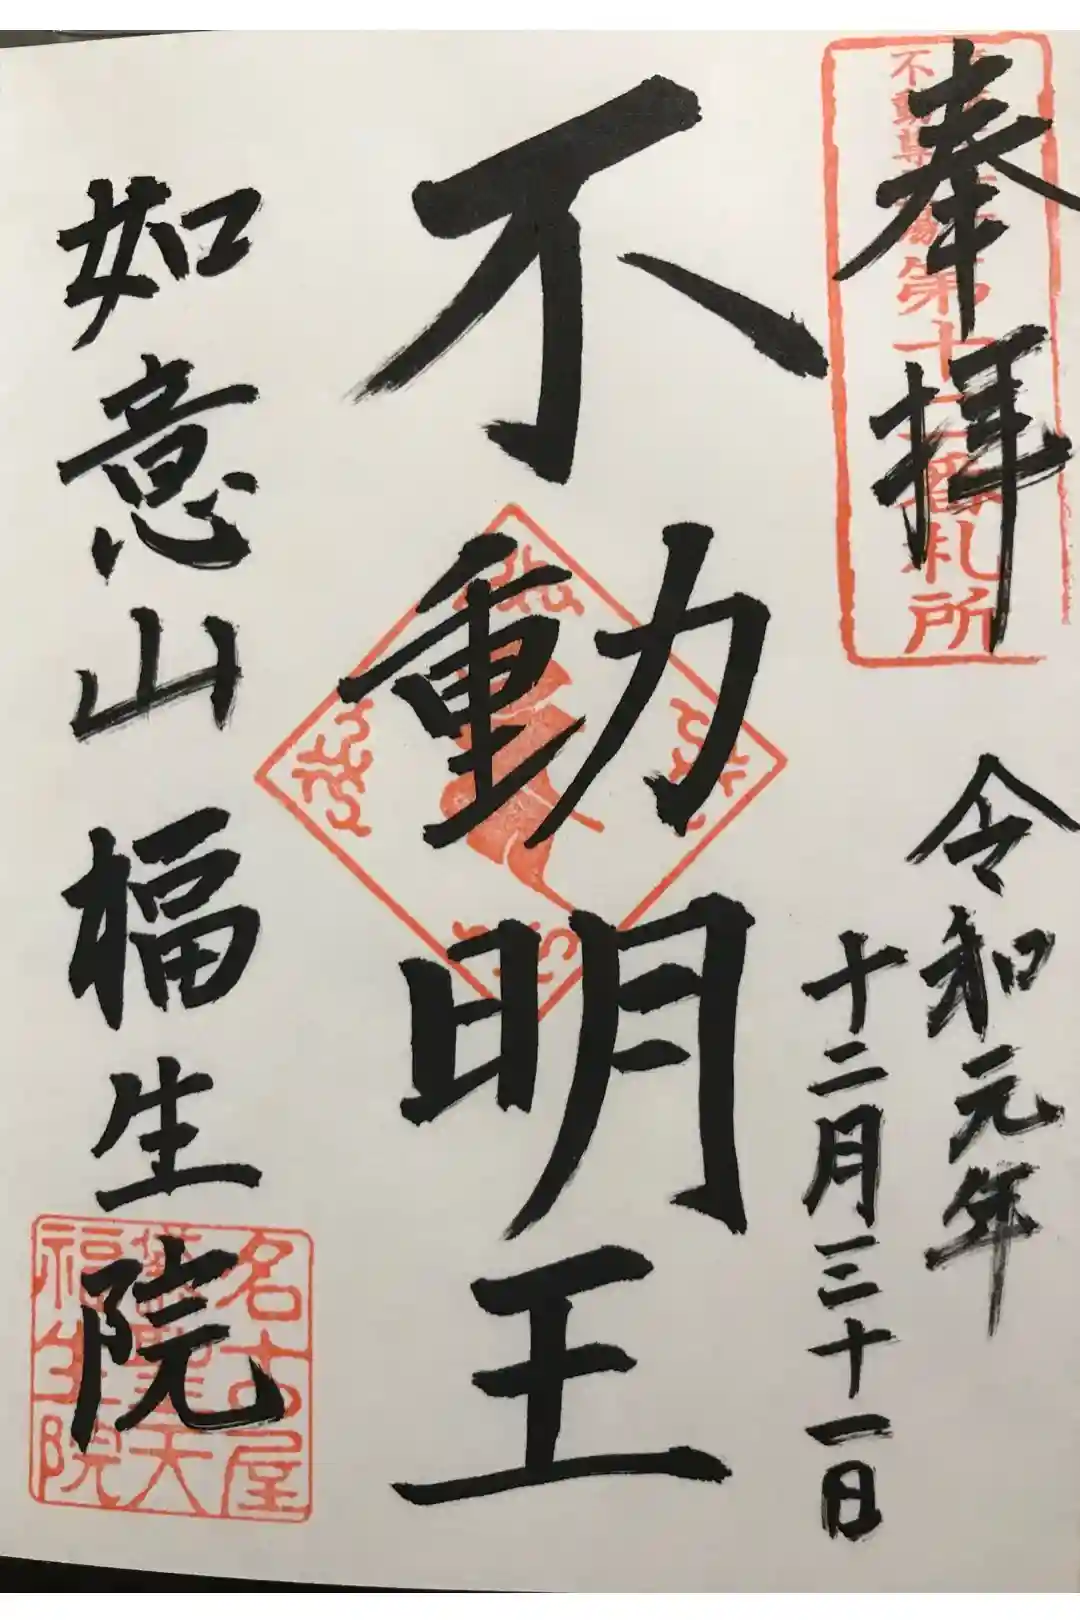 奉拝
第十二番札所
令和元年
十二月三十一日
不動明王
如意山福生院
名古屋
聖天
福生院